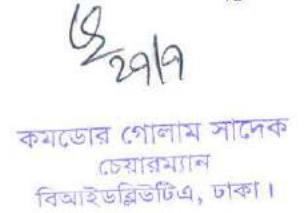 ২৭/৭
কমডোর গোলাম সাদেক
চেয়ারম্যান
বিআইডব্লিউটিএ, ঢাকা।